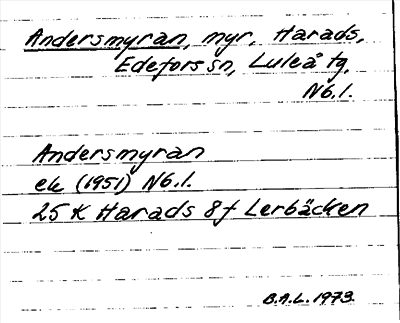 Andersmyran, myr, Harads,
Edefors sn, Luleå tg,
Nb.l.
Andersmyran
ek (1951) Nb.l.
25 K Harads 8f Lerbäcken
B.A.L. 1973.